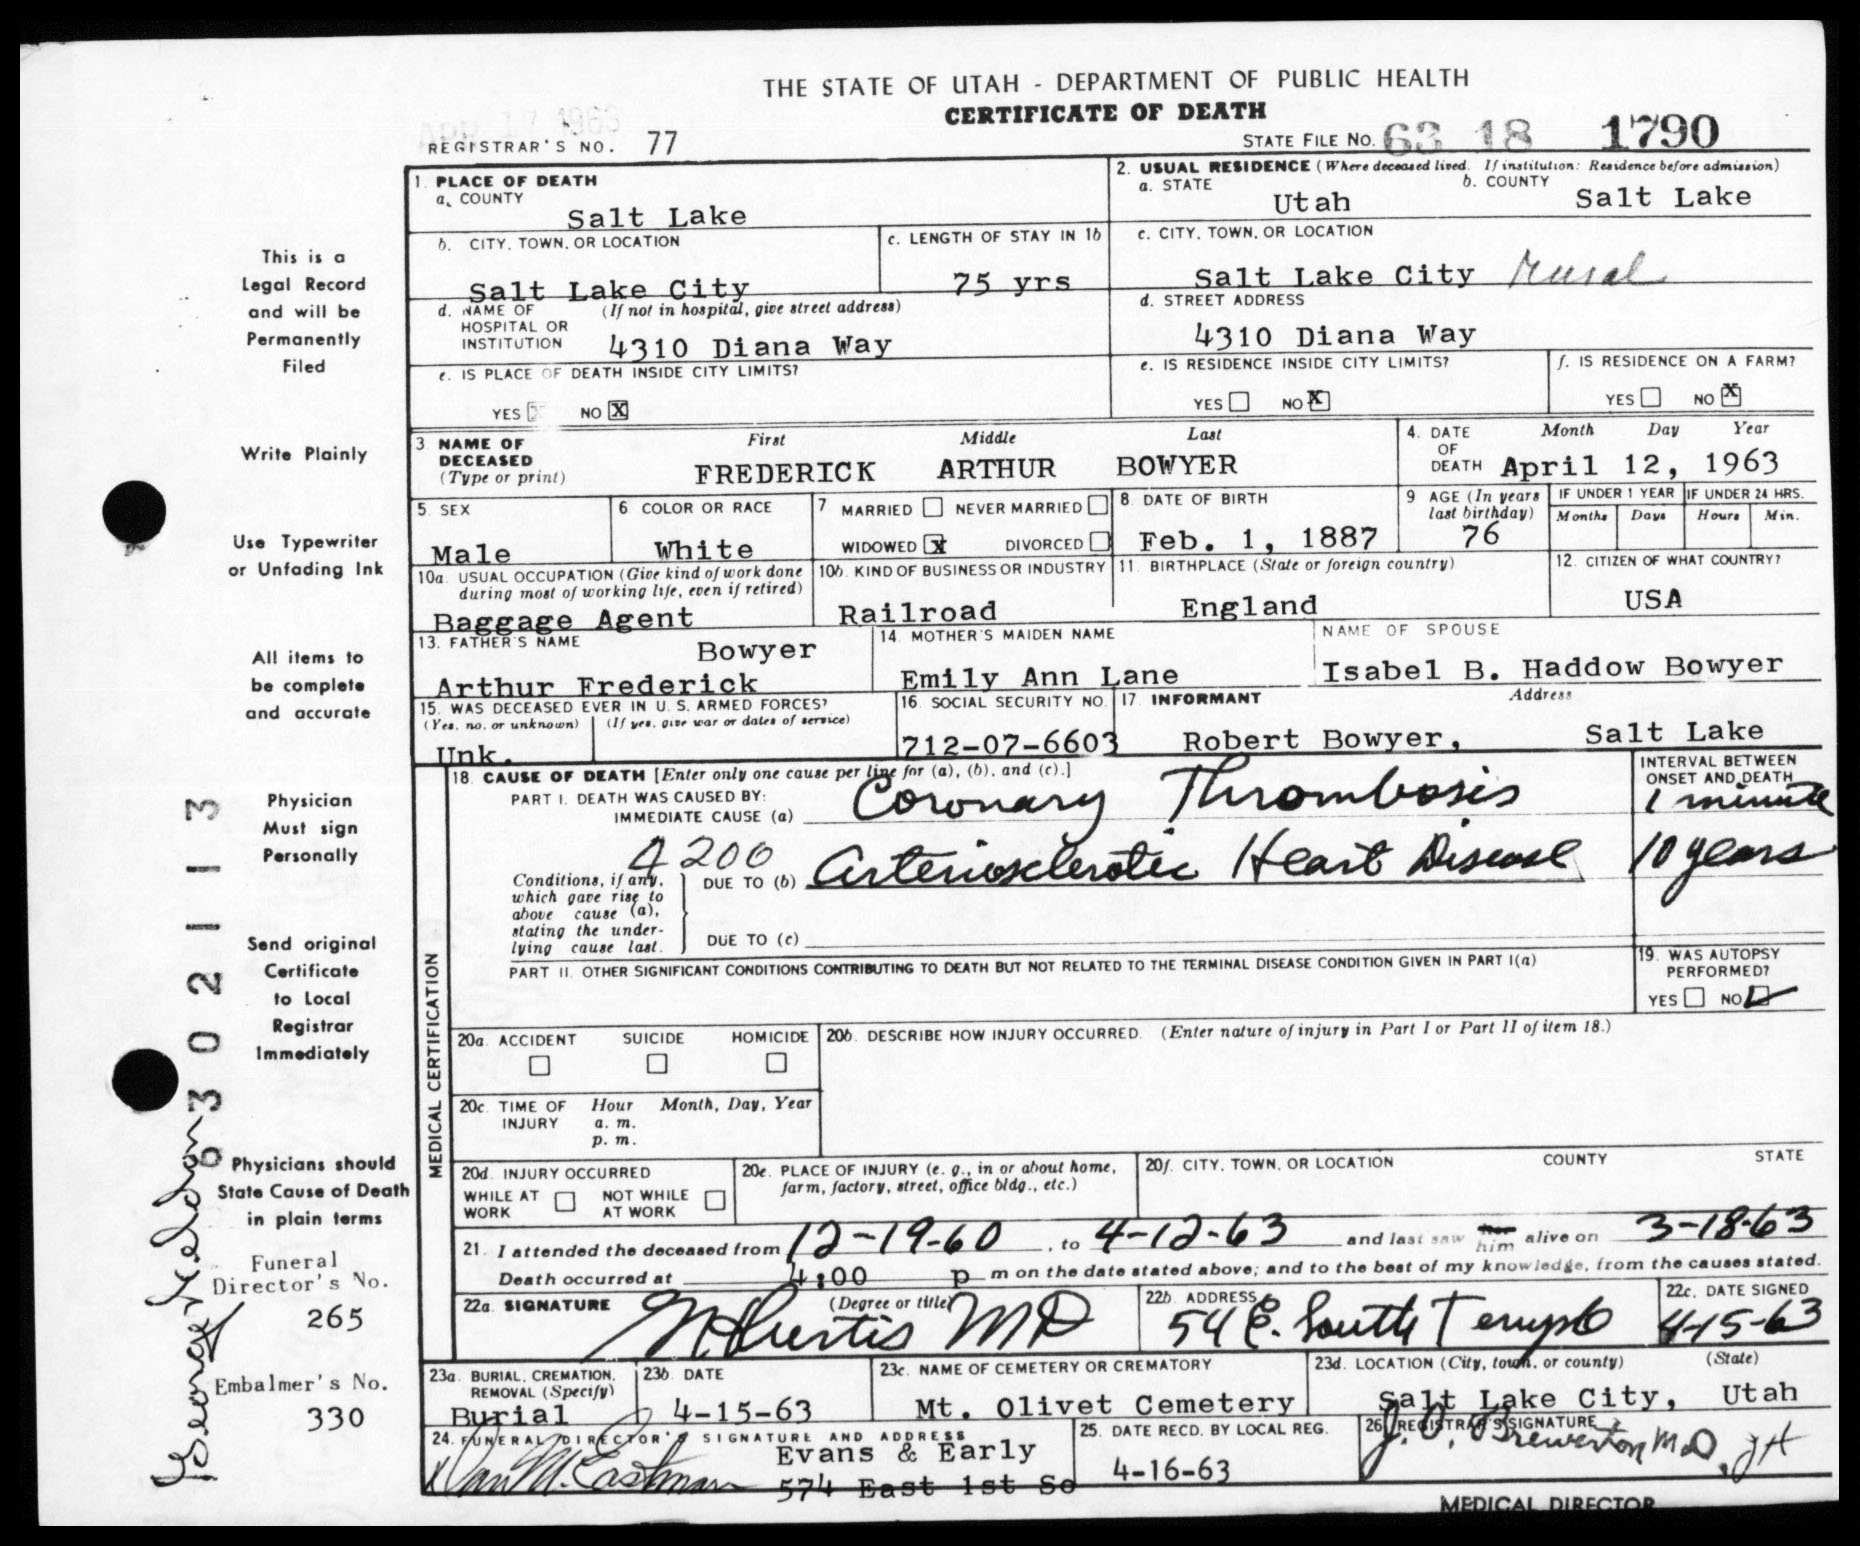 THE STATE OF UTAH - DEPARTMENT OF PUBLIC HEALTH
CERTIFICATE OF DEATH
APR 17 1963
REGISTRAR'S NO. 77
STATE FILE NO. 63 18 1790
1. PLACE OF DEATH
a. COUNTY
Salt Lake
2. USUAL RESIDENCE (Where deceased lived. If institution: Residence before admission)
a. STATE Utah b. COUNTY Salt Lake
b. CITY, TOWN, OR LOCATION
Salt Lake City
c. LENGTH OF STAY IN 1b
75 yrs
c. CITY, TOWN, OR LOCATION
Salt Lake City Rural
d. NAME OF HOSPITAL OR INSTITUTION (If not in hospital, give street address)
4310 Diana Way
d. STREET ADDRESS
4310 Diana Way
e. IS PLACE OF DEATH INSIDE CITY LIMITS?
YES NO X
e. IS RESIDENCE INSIDE CITY LIMITS?
YES NO X
f. IS RESIDENCE ON A FARM?
YES NO X
3 NAME OF DECEASED (Type or print)
First Middle Last
FREDERICK ARTHUR BOWYER
4. DATE OF DEATH
Month Day Year
April 12, 1963
5. SEX
Male
6 COLOR OR RACE
White
7 MARRIED NEVER MARRIED
WIDOWED X DIVORCED
8 DATE OF BIRTH
Feb. 1, 1887
9 AGE (In years last birthday)
76
IF UNDER 1 YEAR
Months Days
IF UNDER 24 HRS.
Hours Min.
10a. USUAL OCCUPATION (Give kind of work done during most of working life, even if retired)
Baggage Agent
10b. KIND OF BUSINESS OR INDUSTRY
Railroad
11. BIRTHPLACE (State or foreign country)
England
12. CITIZEN OF WHAT COUNTRY?
USA
13. FATHER'S NAME
Bowyer
Arthur Frederick
14. MOTHER'S MAIDEN NAME
Emily Ann Lane
NAME OF SPOUSE
Isabel B. Haddow Bowyer
15. WAS DECEASED EVER IN U.S. ARMED FORCES?
(Yes, no, or unknown) (If yes, give war or dates of service)
Unk.
16. SOCIAL SECURITY NO.
712-07-6603
17. INFORMANT Address
Robert Bowyer, Salt Lake
MEDICAL CERTIFICATION
18. CAUSE OF DEATH [Enter only one cause per line for (a), (b), and (c).]
INTERVAL BETWEEN ONSET AND DEATH
PART I. DEATH WAS CAUSED BY:
IMMEDIATE CAUSE (a) Coronary Thrombosis 1 minute
4200
Conditions, if any, which gave rise to above cause (a), stating the underlying cause last.
DUE TO (b) Arteriosclerotic Heart Disease 10 years
DUE TO (c)
PART II. OTHER SIGNIFICANT CONDITIONS CONTRIBUTING TO DEATH BUT NOT RELATED TO THE TERMINAL DISEASE CONDITION GIVEN IN PART I(a)
19. WAS AUTOPSY PERFORMED?
YES NO
20a. ACCIDENT SUICIDE HOMICIDE
20b. DESCRIBE HOW INJURY OCCURRED. (Enter nature of injury in Part I or Part II of item 18.)
20c. TIME OF INJURY Hour Month, Day, Year
a. m.
p. m.
20d. INJURY OCCURRED
WHILE AT WORK NOT WHILE AT WORK
20e. PLACE OF INJURY (e. g., in or about home, farm, factory, street, office bldg., etc.)
20f. CITY, TOWN, OR LOCATION COUNTY STATE
21. I attended the deceased from 12-19-60, to 4-12-63 and last saw her him alive on 3-18-63
Death occurred at 4:00 p m on the date stated above; and to the best of my knowledge, from the causes stated.
22a. SIGNATURE (Degree or title)
Curtis MD
22b. ADDRESS
54 E. South Temple
22c. DATE SIGNED
4-15-63
23a. BURIAL, CREMATION, REMOVAL (Specify)
Burial
23b. DATE
4-15-63
23c. NAME OF CEMETERY OR CREMATORY
Mt. Olivet Cemetery
23d. LOCATION (City, town, or county) (State)
Salt Lake City, Utah
24. FUNERAL DIRECTOR'S SIGNATURE AND ADDRESS
Evans & Early
Dan M. Eastman 574 East 1st So
25. DATE RECD. BY LOCAL REG.
4-16-63
26. REGISTRAR'S SIGNATURE
J. O. Brewerton M.D., JH
MEDICAL DIRECTOR
This is a
Legal Record
and will be
Permanently
Filed
Write Plainly
Use Typewriter
or Unfading Ink
All items to
be complete
and accurate
Physician
Must sign
Personally
Send original
Certificate
to Local
Registrar
Immediately
Physicians should
State Cause of Death
in plain terms
Funeral
Director's No.
265
Embalmer's No.
330
6302113
George